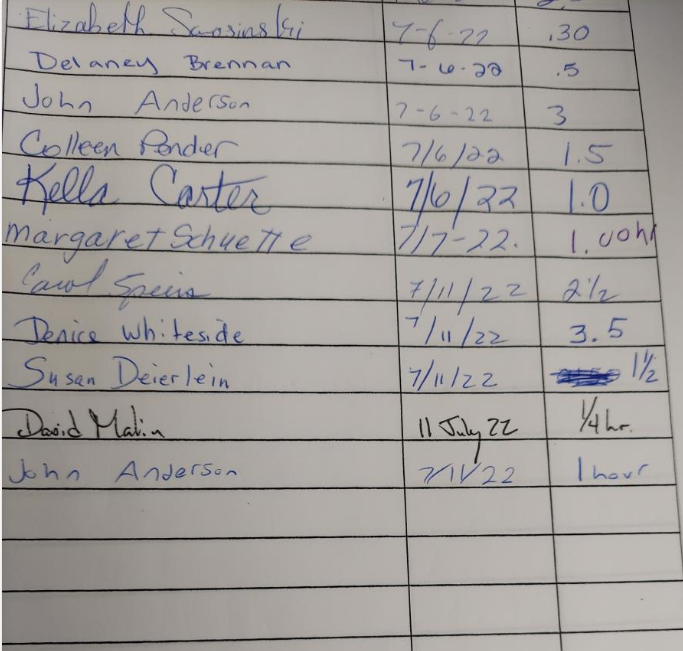 Elizabeth 7-6-22 .30
Delaney Brennan 7-6-22 .5
John Anderson 7-6-22 3
Colleen Ponder 7/6/22 1.5
Kella Carter 7/6/22 1.0
Margaret Schuette 7/7-22. 1.00hr
Carol 7/11/22 2 1/2
Denice Whiteside 7/11/22 3.5
Susan Deierlein 7/11/22 1 1/2
David Malin 11 July 22 1/4 hr.
John Anderson 7/11/22 1 hour